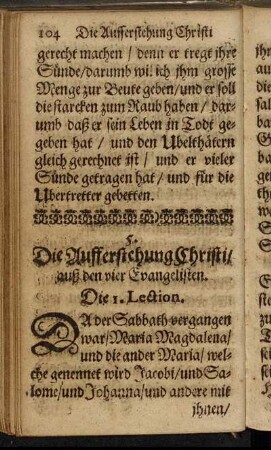 104 Die Aufferstehung Christi
gerecht machen / denn er tregt jhre
Sünde/darumb wil ich jhm grosse
Menge zur Beute geben/und er soll
die starcken zum Raub haben / dar-
umb daß er sein Leben in Todt ge-
geben hat / und den Ubelthätern
gleich gerechnet ist / und er vieler
Sünde getragen hat / und für die
Ubertretter gebetten.
5.
Die Aufferstehung Christi/
auß den vier Evangelisten.
Die 1. Lection.
DA der Sabbath vergangen
war/Maria Magdalena/
und die ander Maria/ wel-
che genennet wird Jacobi/und Sa-
lome/und Johanna/und andere mit
jhnen/